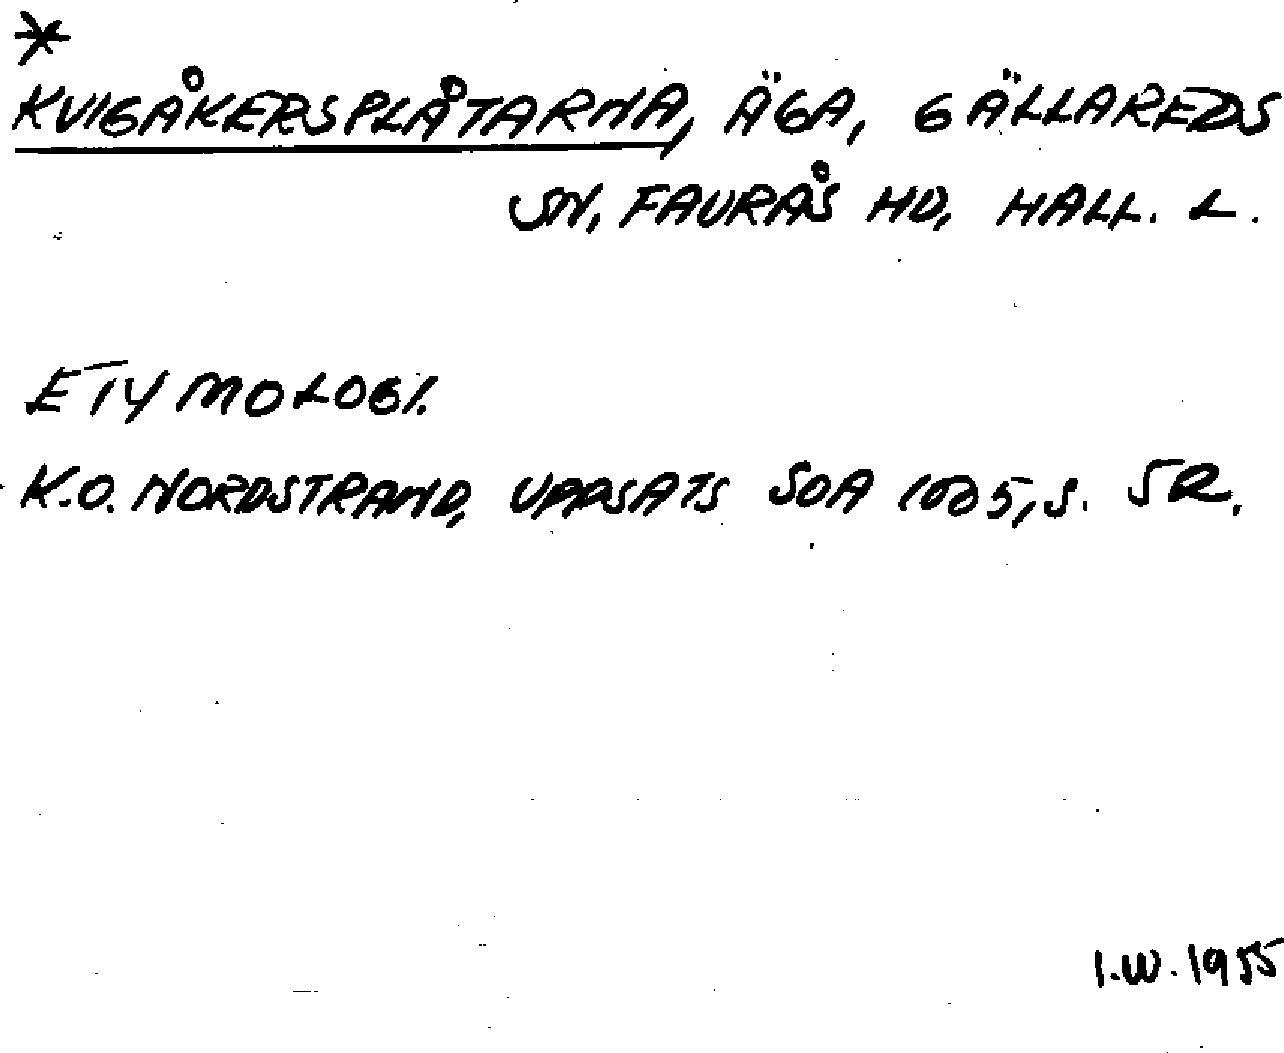 *
KVIGÅKERSPLÅTARNA, ÄGA, GÄLLAREDS
SN, FAURÅS HD, HALL. L.
ETYMOLOGI.
K.O. NORDSTRAND, UPPSATS SOA s.
I.W. 1955